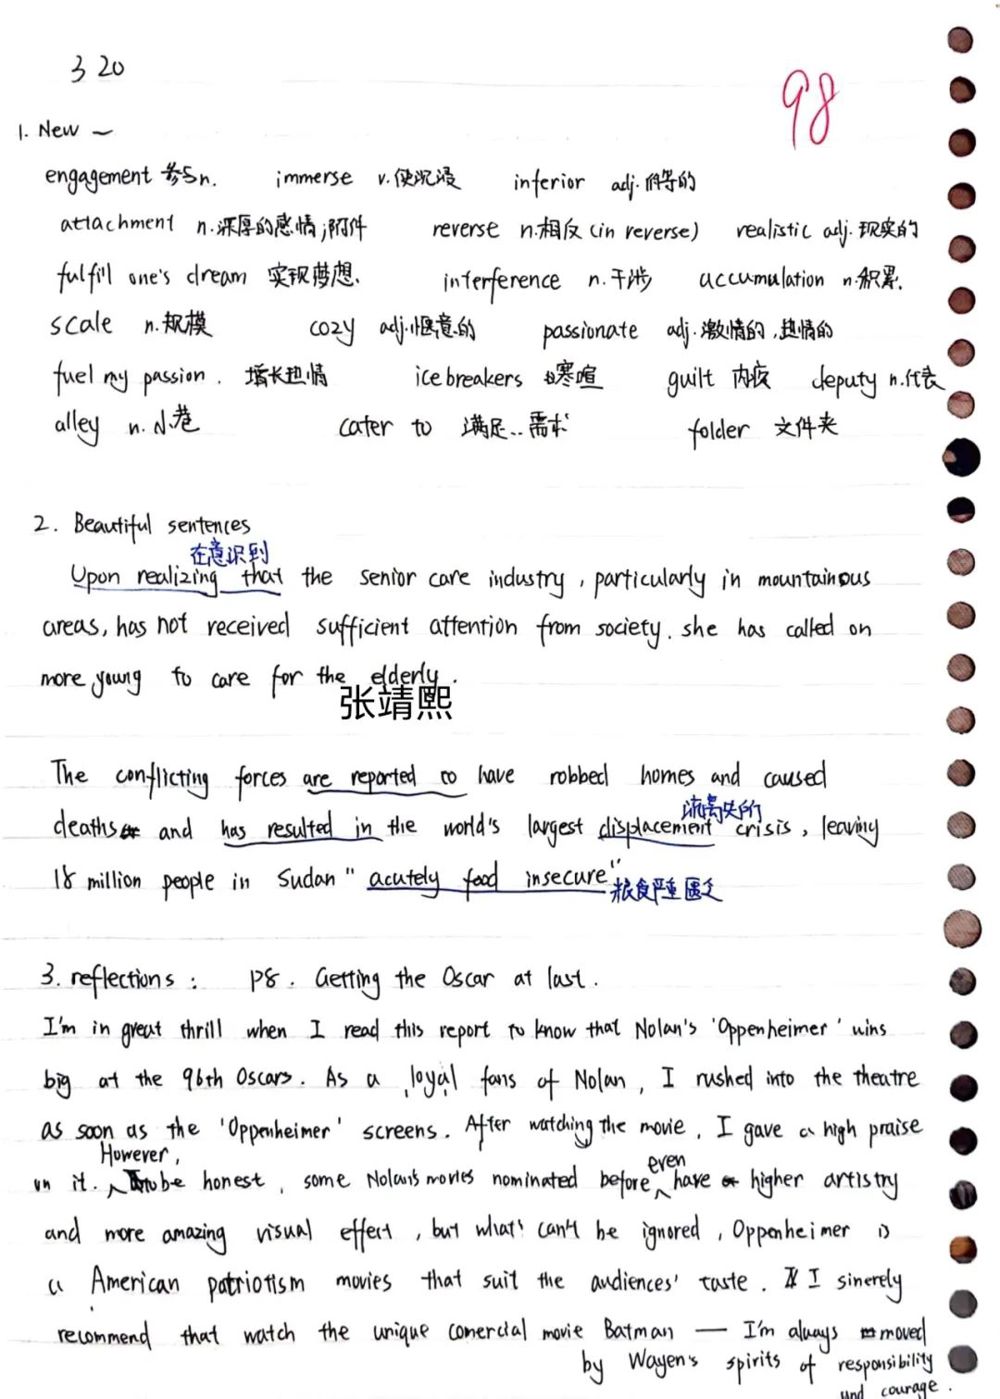 3 20
98
1. New ~
engagement 参与n. immerse v.使沉浸 inferior adj.低等的
attachment n.深厚的感情;附件 reverse n.相反(in reverse) realistic adj.现实的
fulfill one's dream 实现梦想. interference n.干涉 accumulation n.积累.
scale n.规模 cozy adj.惬意的 passionate adj.激情的,热情的
fuel my passion. 增长热情 icebreakers 寒暄 guilt 内疚 deputy n.代表
alley n.小巷 cater to 满足..需求 folder 文件夹
2. Beautiful sentences
在意识到
Upon realizing that the senior care industry, particularly in mountainous
areas, has not received sufficient attention from society. she has called on
more young to care for the elderly.
张靖熙
The conflicting forces are reported to have robbed homes and caused
流离失所
deaths and has resulted in the world's largest displacement crisis, leaving
18 million people in Sudan "acutely food insecure"
粮食严重匮乏
3. reflections: P8. Getting the Oscar at last.
I'm in great thrill when I read this report to know that Nolan's 'Oppenheimer' wins
big at the 96th Oscars. As a loyal fans of Nolan, I rushed into the theatre
as soon as the 'Oppenheimer' screens. After watching the movie, I gave a high praise
on it. However, to be honest, some Nolan's movies nominated before even have higher artistry
and more amazing visual effect, but what's can't be ignored, Oppenheimer is
a American patriotism movies that suit the audiences' taste. I sinerely
recommend that watch the unique comercial movie Batman — I'm always moved
by Wayen's spirits of responsibility
and courage.